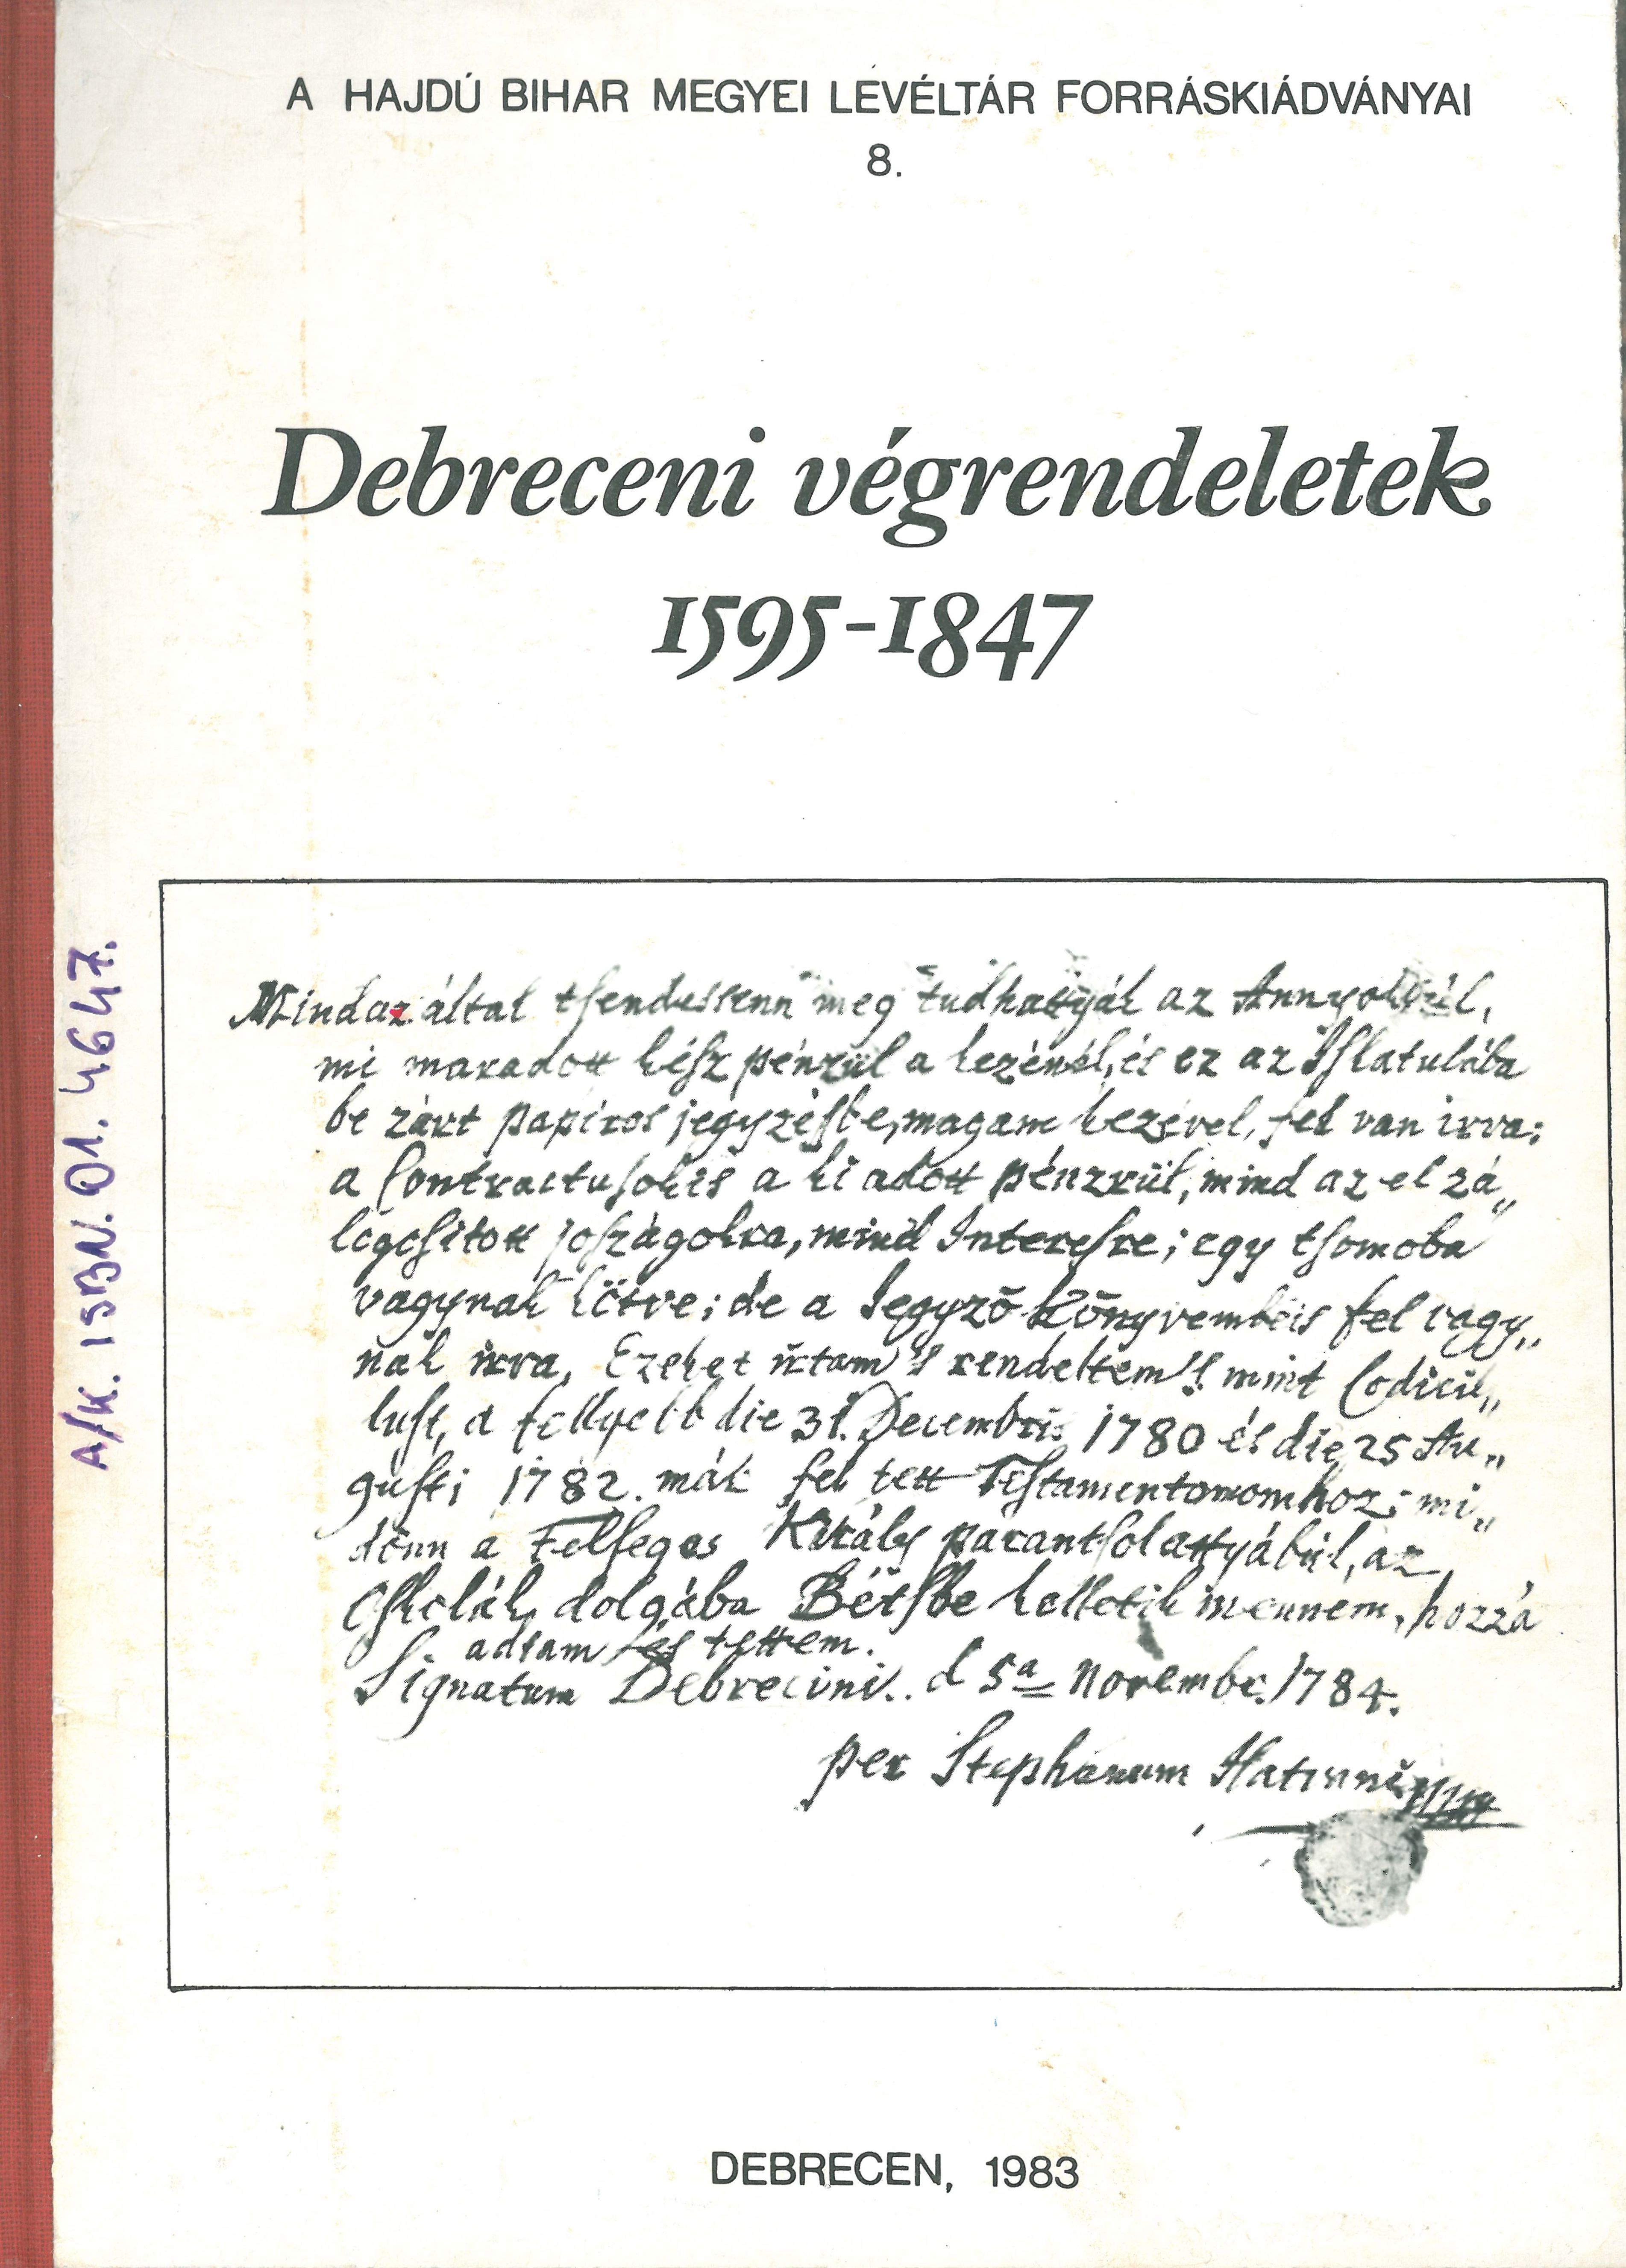 A HAJDÚ BIHAR MEGYEI LEVÉLTÁR FORRÁSKIÁDVÁNYAI
8.
Debreceni végrendeletek
1595-1847
A/K. ISBN. 01. 4647.
Mindaz által tsendessenn meg tudhattyák az Annyokrúl,
mi maradott kész pénzül a kezénél, és ez az Iskatulába
be zárt papiros jegyzésbe, magam kezével, fel van irva:
a Contractusokis a ki adott pénzrül, mind az el zá„
logositott joszágokra, mind Interesre; egy tsomoba
vagynak kötve; de a Jegyzö Könyvembeis fel vagy„
nak irva. Ezeket irtam 's rendeltem 's mint Codicil„
lust, a fellyebb die 31. Decembris 1780 és die 25 Au„
gusti 1782. már fel tett Testamentomomhoz; mi„
dönn a Felseges Király parantsolattyábúl, az
Oskolák dolgába Bétsbe kelletik mennem, hozzá
adtam és tettem.
Signatum Debrecini.. d 5a Novembr. 1784.
per Stephanum Hatvani
DEBRECEN, 1983